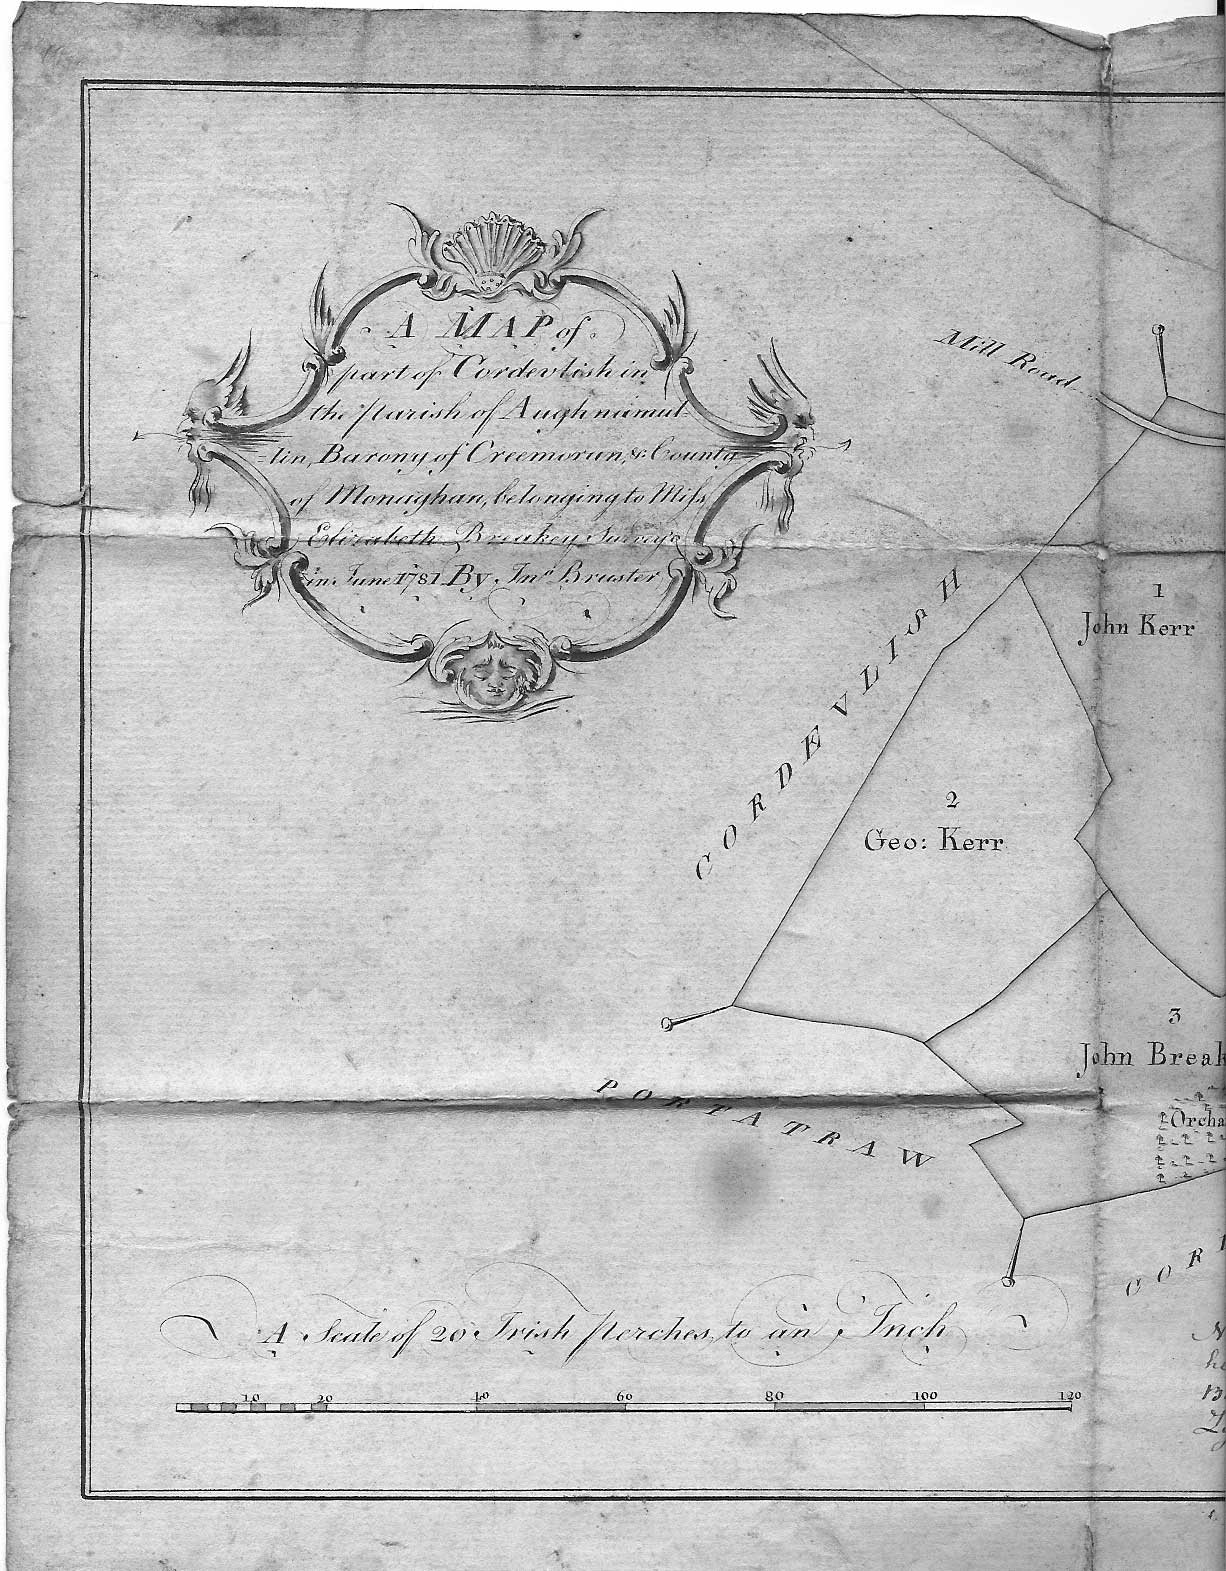 A MAP of
part of Cordevlish in
the parish of Aughnamul
=lin, Barony of Creemorun, & County
of Monaghan, belonging to Miſs
Elizabeth Breakey Survey'd
in June 1781 By Jnº Bruster
Mill Road
1
John Kerr
CORDEVLISH
2
Geo: Kerr
3
John Break
Orcha
PORTATRAW
COR
A Scale of 20 Irish perches to an Inch
10 20 40 60 80 100 120